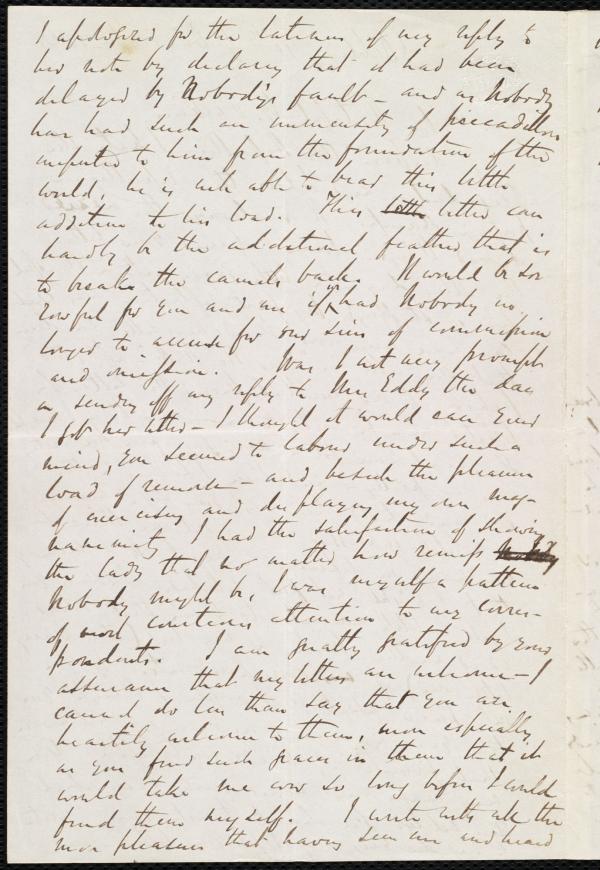 I apologized for the lateness of my reply to
her note by declaring that it had been
delayed by Nobody's fault - and as Nobody
has had such an immensity of peccadilloes
imputed to him from the foundation of the
world, he is well able to bear this little
addition to his load. This letter can
hardly be the additional feather that is
to break the camel's back. It would be sor
rowful for you and me if we had Nobody no
longer to accuse for our sins of commission
and omission. Was I not very prompt
in sending off my reply to Mrs Eddy the day
I got her letter - I thought it would ease your
mind, you seemed to labour under such a
load of remorse - and beside the pleasure
of exercising and displaying my own mag-
nanimity I had the satisfaction of showing
the lady that no matter how remiss
Nobody might be, I was myself a pattern
of most courteous attention to my corres-
pondents. I am greatly gratified by your
assurance that my letters are welcome - I
cannot do less than say that you are
heartily welcome to them, more especially
as you find such graces in them that it
would take me ever so long before I could
find them myself. I write with all the
more pleasure that having seen me and heard